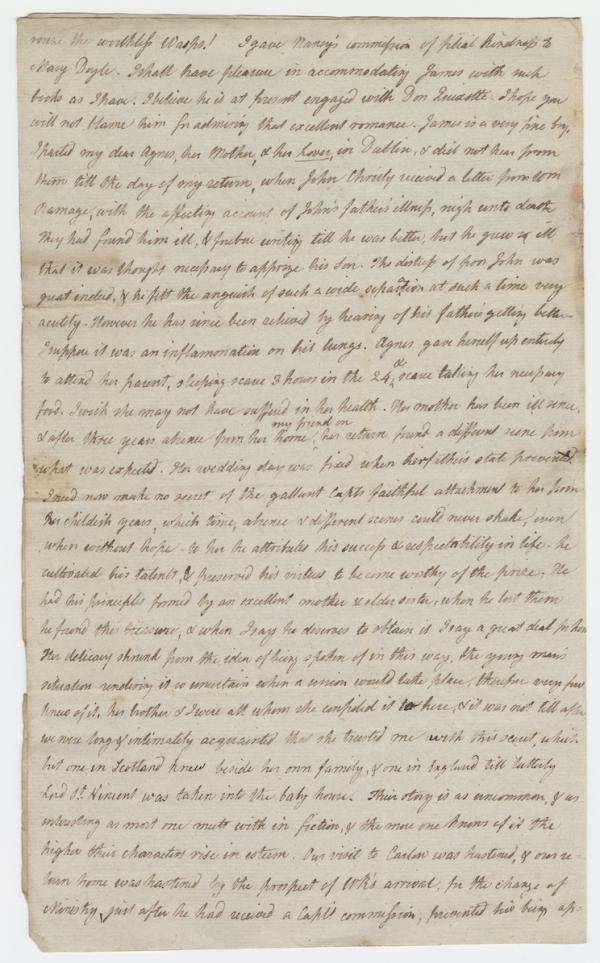 rouse the worthless Wasps! I gave Nancy's commission of filial kindness to
Mary Doyle. I shall have pleasure in accommodating James with such
books as I have. I believe he is at present engaged with Don Quixotte. I hope you
will not blame him for admiring that excellent romance. James is a very fine boy.
I parted my dear Agnes, her Mother, & her Lover, in Dublin, & did not hear from
them till the day of my return, when John Christy received a letter from Wm
Ramage, with the affecting account of John's father's illness, nigh unto death
They had found him ill, & forbore writing till he was better, but he grew so ill
that it was thought necessary to apprize his son. The distress of poor John was
great indeed, & he felt the anguish of such a wide separation at such a time very
acutely. However he has since been relieved by hearing of his father's getting better
I suppose it was an inflammation on his lungs. Agnes gave herself up entirely
to attend her parent, sleeping scarce 3 hours in the 24, & scarce taking her necessary
food. I wish she may not have suffered in her health. Her mother has been ill since,
& after three years absence from her home, my friend on her return found a different scene from
what was expected. Her wedding day was fixed when her father's state prevented.
I need now make no secret of the gallant Capt's faithful attachment to her from
her childish years, which time, absence & different scenes could never shake, even
when without hope - to her he attributes his success & respectability in life - he
cultivated his talents, & preserved his virtues to become worthy of the prize. He
had his principles formed by an excellent mother & elder sister, when he lost them
he found this treasure, & when I say he deserves to obtain it I say a great deal for him
Her delicacy shrunk from the idea of being spoken of in this way, the young man's
situation rendering it so uncertain when a union would take place, therefore very few
knew of it, her brother & I were all whom she confided it to here, & it was not till after
we were long & intimately acquainted that she trusted me with this secret, which
but one in Scotland knew beside her own family, & one in England till latterly
Lord St. Vincent was taken into the baby house. Their story is as uncommon, & as
interesting as most one meets with in fiction, & the more one knows of it the
higher their characters rise in esteem. Our visit to Carlow was hastened, & our re=
turn home was hastened by the prospect of WR's arrival, for the change of
Ministry, just after he had received a Capt's commission, prevented his being ap=